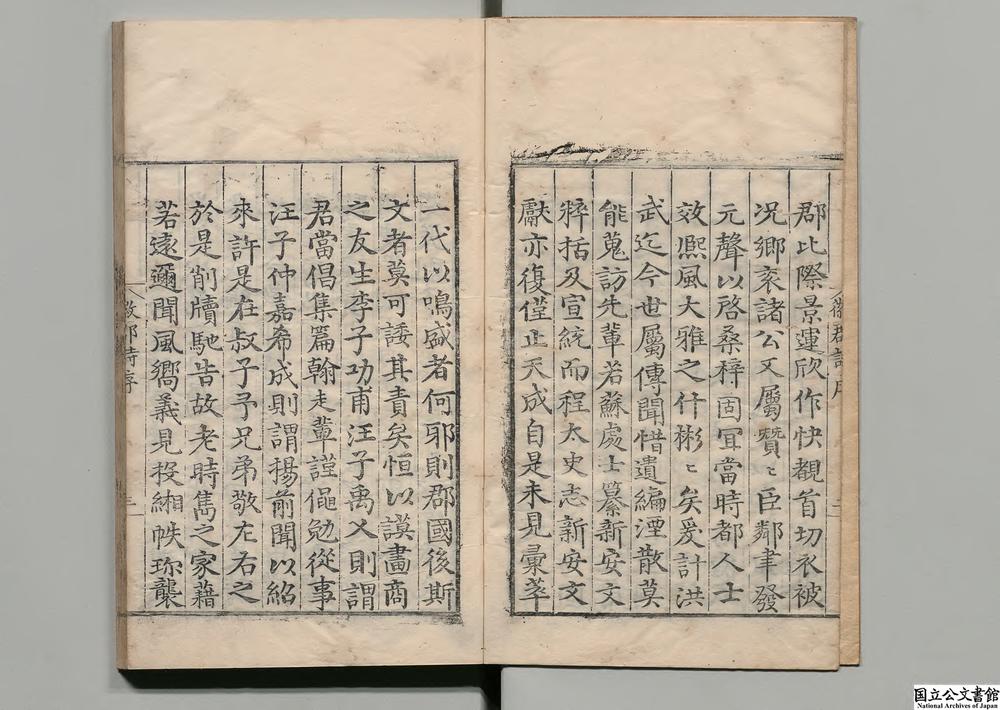 郡比際景運欣作快覩首切衣被
况鄉衮諸公又屬贊〻臣鄰聿發
元聲以啓桑梓固宜當時都人士
效熈風大雅之什彬〻矣爰計洪
武迄今世屬傳聞惜遺編湮散莫
能蒐訪先輩若蘇處士纂新安文
粹括及宣統而程太史志新安文
獻亦復僅止天成自是未見彙萃
一代以鳴盛者何邪則郡國後斯
文者莫可諉其責矣恒以謨畫商
之友生李子功甫汪子禹乂則謂
君當倡集篇翰走輩謹僶勉從事
汪子仲嘉希成則謂揚前聞以紹
來許是在叔子予兄弟敬左右之
於是削牘馳告故老時雋之家藉
若遠邇聞風嚮義見投緗帙珎襲
徽郡詩序
三
国立公文書館
National Archives of Japan